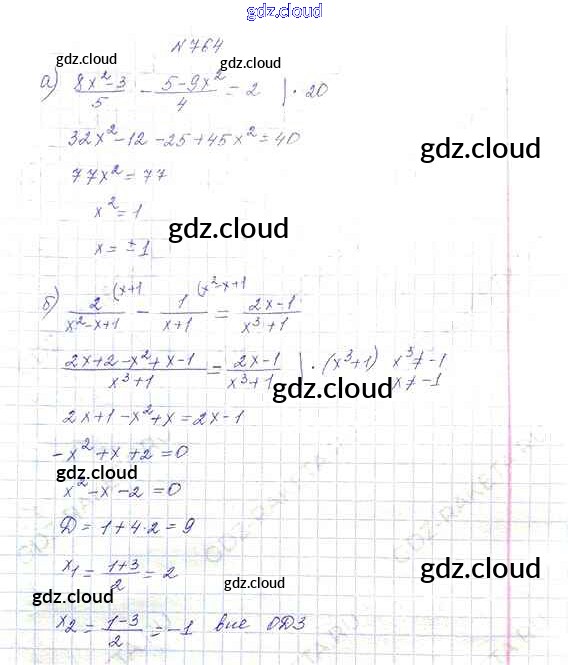 gdz.cloud
№764
gdz.cloud gdz.cloud
а) (8x²-3)/5 - (5-9x²)/4 = 2 | · 20
32x² - 12 - 25 + 45x² = 40
gdz.cloud
77x² = 77
x² = 1
gdz.cloud
x = ± 1
б) 2/(x²-x+1) (x+1 - 1/(x+1) (x²-x+1 = (2x-1)/(x³+1)
(2x+2-x²+x-1)/(x³+1) = (2x-1)/(x³+1) | · (x³+1) x³≠-1
x≠-1
gdz.cloud
2x+1-x²+x=2x-1
-x²+x+2=0
gdz.cloud gdz.cloud
x²-x-2=0
Д=1+4·2=9
x₁ = (1+3)/2 = 2
gdz.cloud gdz.cloud gdz.cloud
x₂ = (1-3)/2 = -1 вне ОДЗ